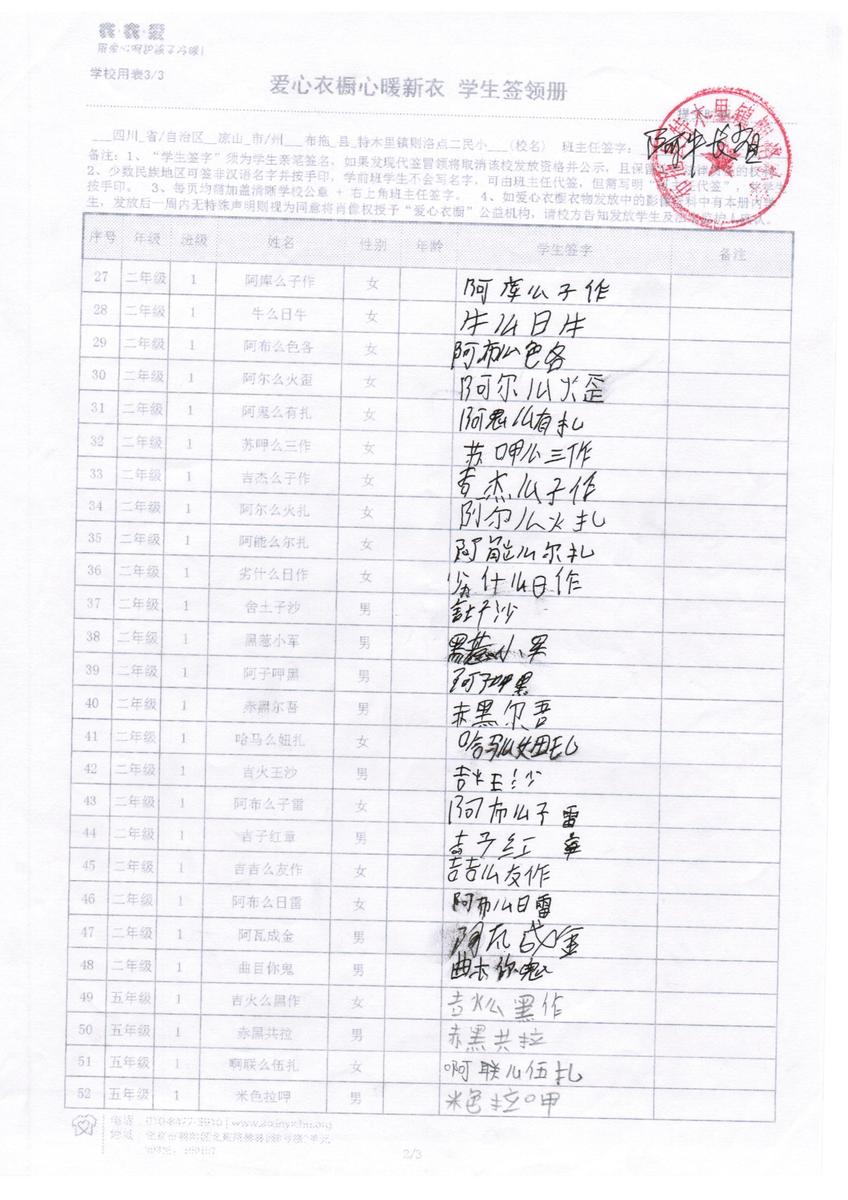 衣·衣·爱
用爱心呵护孩子冷暖!
学校用表3/3
爱心衣橱心暖新衣 学生签领册
___四川_省/自治区__凉山_市/州___布拖_县_特木里镇则洛点二民小___(校名) 班主任签字:
备注:1、“学生签字”须为学生亲笔签名,如果发现代签冒领将取消该校发放资格并公示,且保留
2、少数民族地区可签非汉语名字并按手印,学前班学生不会写名字,可由班主任代签,但需写明“
按手印。 3、每页均需加盖清晰学校公章 + 右上角班主任签字。 4、如爱心衣橱衣物发放中的影像资料中有本册内学
生,发放后一周内无特殊声明则视为同意将肖像权授予“爱心衣橱”公益机构,请校方告知发放学生及
序号 年级 班级 姓名 性别 年龄 学生签字 备注
27 二年级 1 阿库么子作 女 阿库么子作
28 二年级 1 牛么日牛 女 牛么日牛
29 二年级 1 阿布么色各 女 阿布么色各
30 二年级 1 阿尔么火歪 女 阿尔么火歪
31 二年级 1 阿鬼么有扎 女 阿鬼么有扎
32 二年级 1 苏呷么三作 女 苏呷么三作
33 二年级 1 吉杰么子作 女 吉杰么子作
34 二年级 1 阿尔么火扎 女 阿尔么火扎
35 二年级 1 阿能么尔扎 女 阿能么尔扎
36 二年级 1 劣什么日作 女 劣什么日作
37 二年级 1 舍土子沙 男 舍土子沙
38 二年级 1 黑惹小军 男 黑惹小军
39 二年级 1 阿子呷黑 男 阿子呷黑
40 二年级 1 赤黑尔吾 男 赤黑尔吾
41 二年级 1 哈马么妞扎 女 哈马么妞扎
42 二年级 1 吉火王沙 男 吉火王沙
43 二年级 1 阿布么子雷 女 阿布么子雷
44 二年级 1 吉子红章 男 吉子红章
45 二年级 1 吉吉么友作 女 吉吉么友作
46 二年级 1 阿布么日雷 女 阿布么日雷
47 二年级 1 阿瓦成金 男 阿瓦成金
48 二年级 1 曲目你鬼 男 曲木你鬼
49 五年级 1 吉火么黑作 女 吉火么黑作
50 五年级 1 赤黑共拉 男 赤黑共拉
51 五年级 1 啊联么伍扎 女 啊联么伍扎
52 五年级 1 米色拉呷 男 米色拉呷
电话
地址
2/3